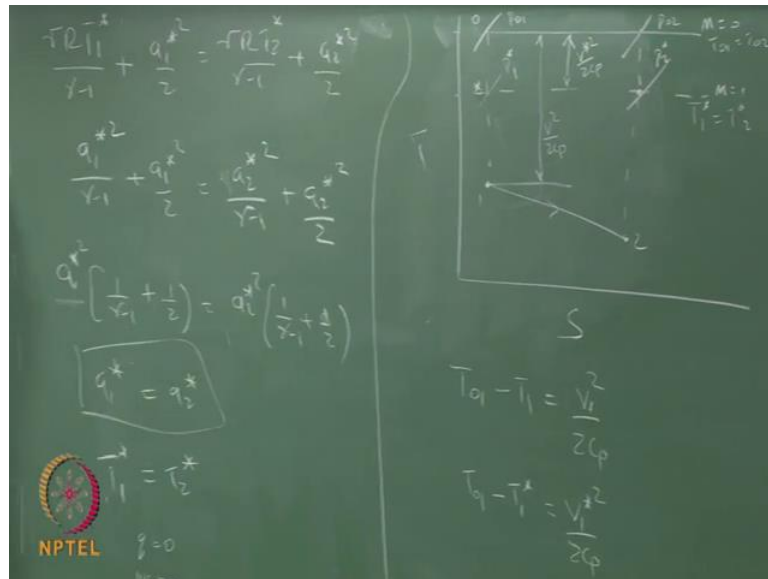 γRT₁*/γ-1 + a₁*²/2 = γRT₂*/γ-1 + a₂*²/2
a₁*²/γ-1 + a₁*²/2 = a₂*²/γ-1 + a₂*²/2
a*² [1/γ-1 + 1/2] = a₂*² (1/γ-1 + 1/2)
a₁* = a₂*
T₁* = T₂*
q=0
NPTEL
0 P01 P02 M=0
T01 = T02
V*²/2cp
P₁* P₂*
* M=1
T₁* = T₂*
T
V²/2cp
1
2
S
T01 - T1 = V1²/2cp
T01 - T1* = V1*²/2cp